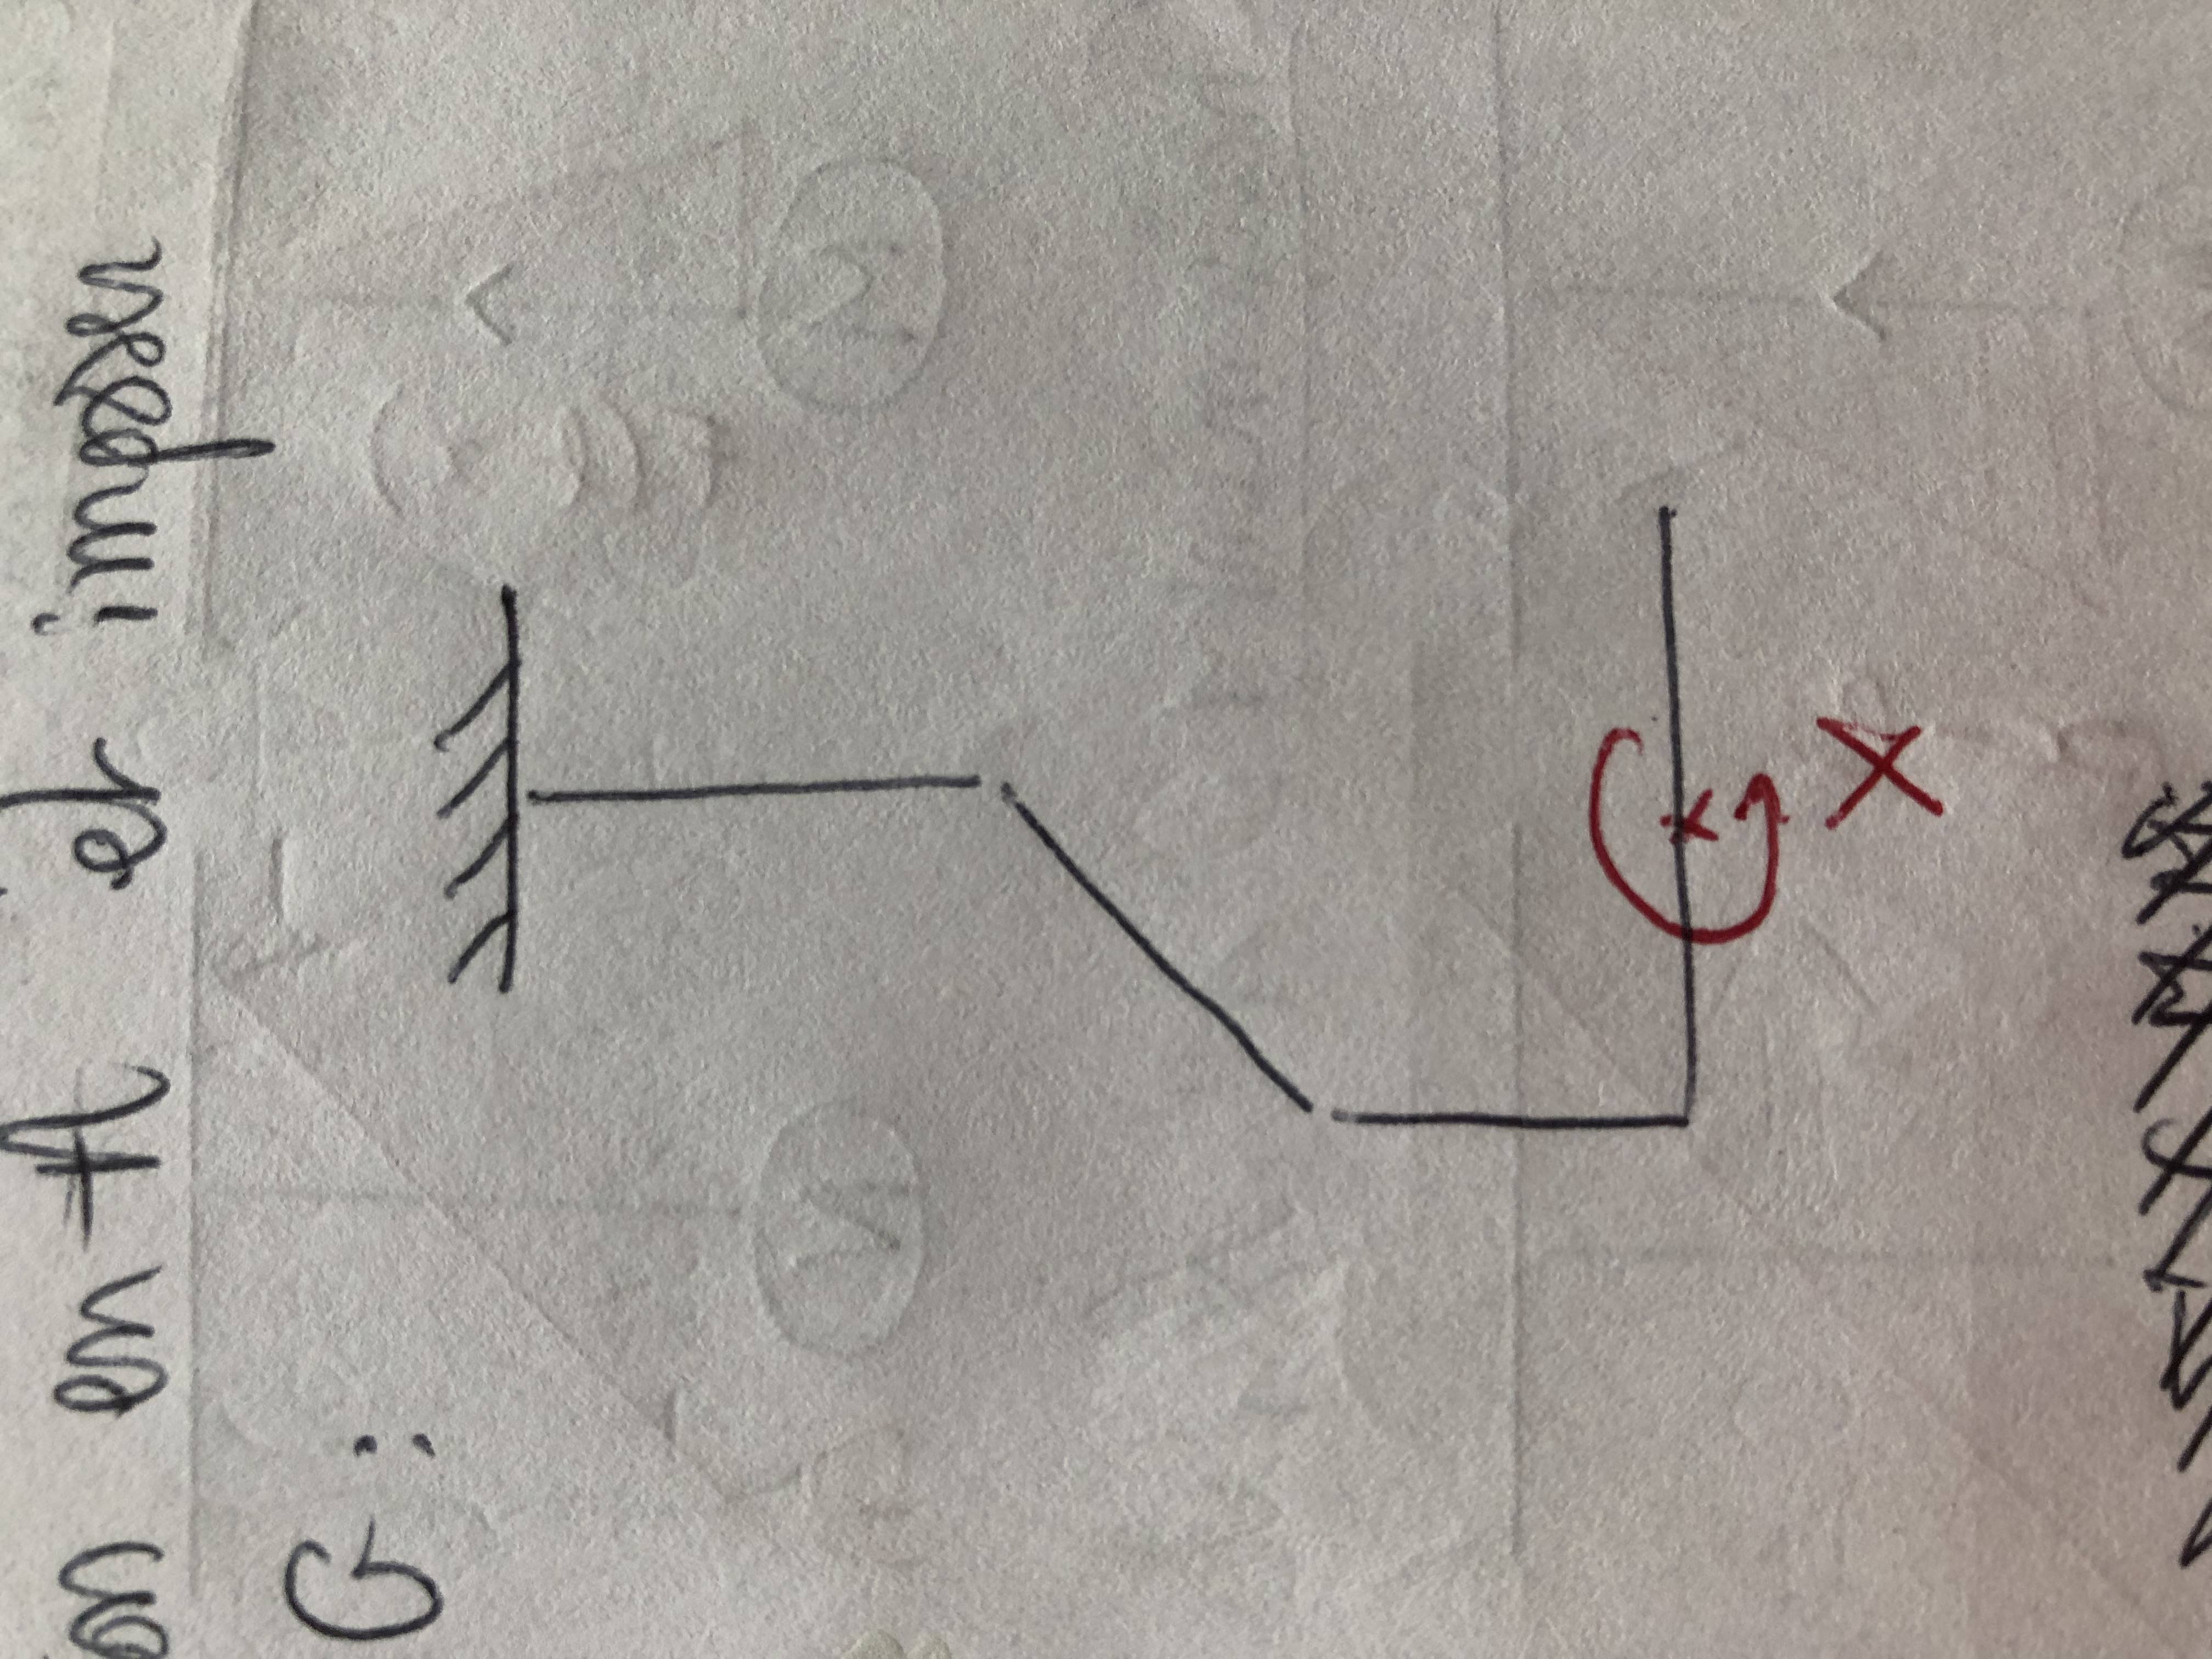 on en A et imposer
G :
X